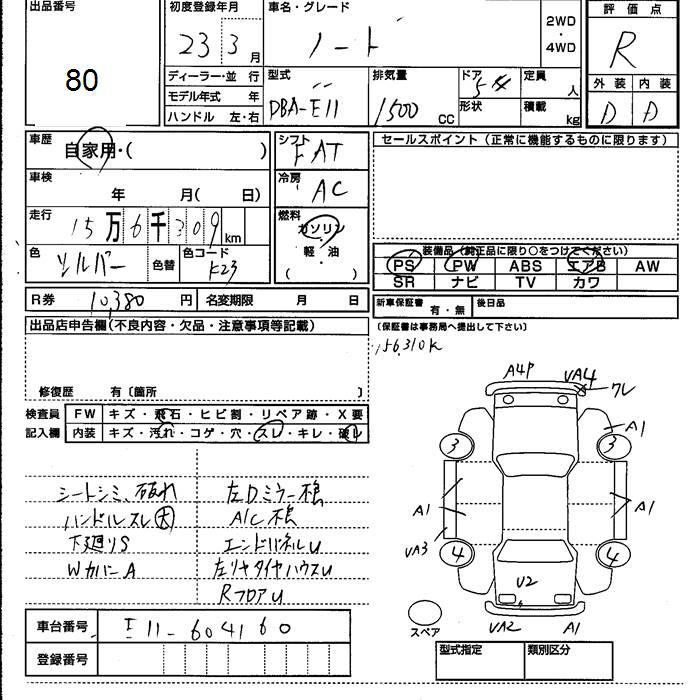 出品番号
80
初度登録年月
23 3 月
車名・グレード
ノート
2WD
・
4WD
評価点
R
外装 内装
D D
ディーラー・並 行
モデル年式 年
ハンドル 左・右
型式
DBA-E11
排気量
1500 CC
ドア
5
形状
定員
人
積載
kg
車歴
自家用・( )
車検
年 月( 日)
走行
15万6千309 km
色
シルバー
色替
色コード
K23
シフト
FAT
冷房
AC
燃料
ガソリン
・
軽・油
( )
セールスポイント(正常に機能するものに限ります)
装備品(純正品に限り○をつけてください)
PS PW ABS エアB AW
SR ナビ TV カワ
R券 10,380 円 名変期限 月 日
新車保証書
有・無
後日品
(保証書は事務局へ提出して下さい)
156,310K
出品店申告欄(不良内容・欠品・注意事項等記載)
修復歴 有〔箇所 〕
検査員
記入欄
FW キズ・飛石・ヒビ割・リペア跡・X要
内装 キズ・汚れ・コゲ・穴・スレ・キレ・破レ
シートシミ、破れ
ハンドルスレ大
下廻りS
WカバーA
左Dミラー不良
A/C不良
エンドパネルU
左リヤタイヤハウスU
RフロアU
A4P
UA4
ワレ
A1
3
3
A1
A1
UA3
4
4
U2
スペア
UA2
A1
車台番号 E11-604160
登録番号
型式指定 類別区分